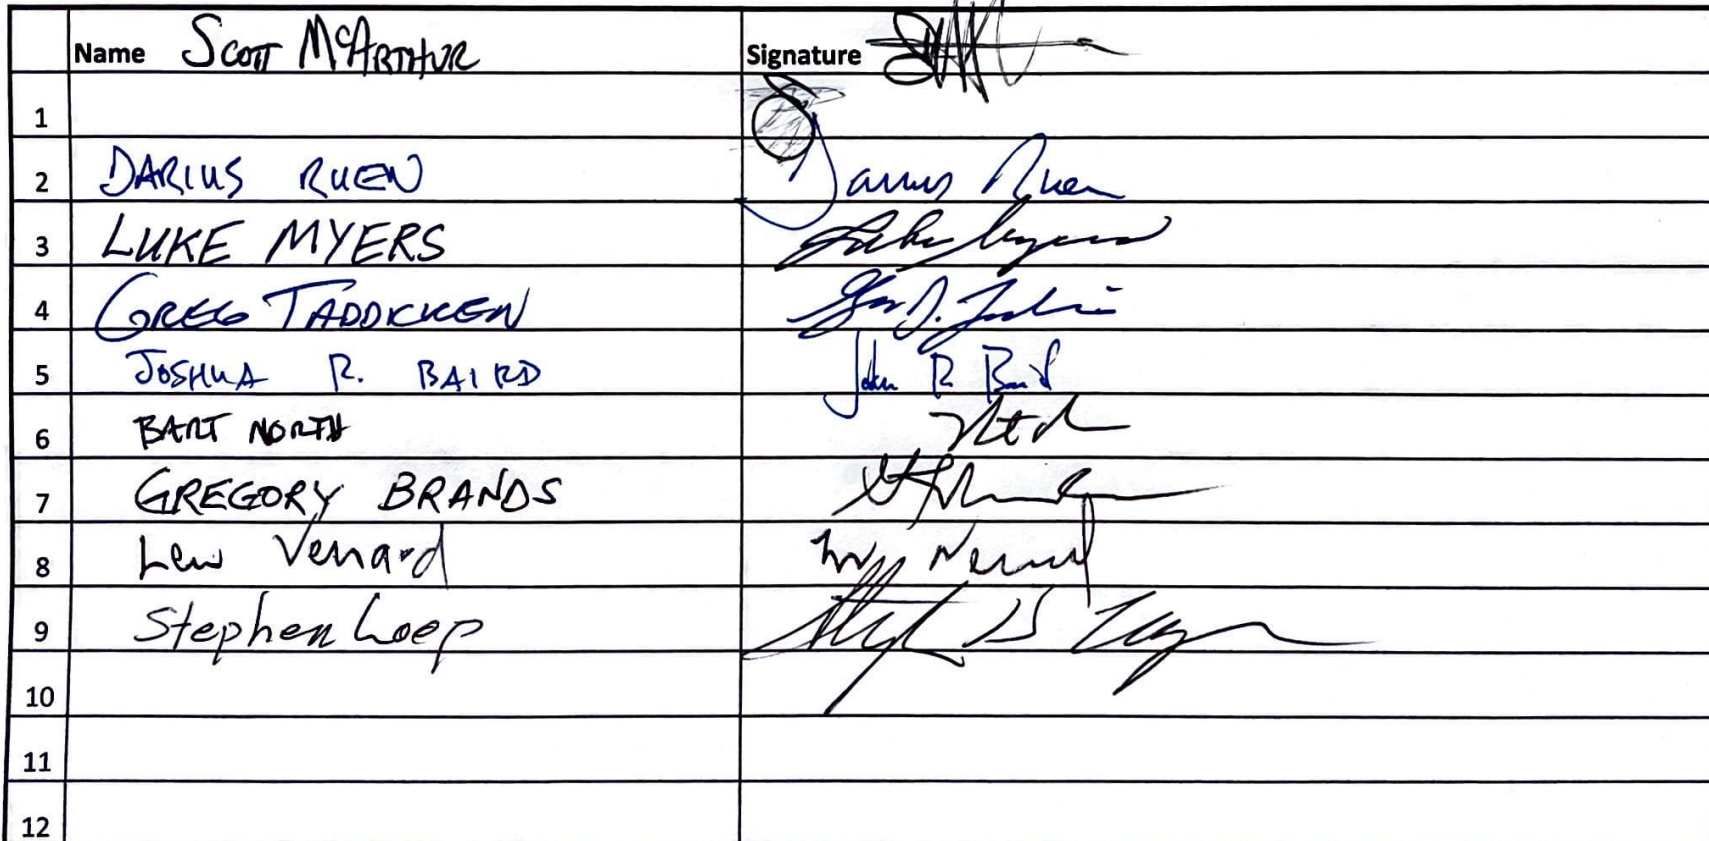 Name Scott McArthur Signature
1
2 DARIUS RUEN Darius Ruen
3 LUKE MYERS Luke Myers
4 GREG TADDICKEN
5 JOSHUA R. BAIRD John R Baird
6 BART NORTH
7 GREGORY BRANDS
8 Lew Venard
9 Stephen Loep
10
11
12